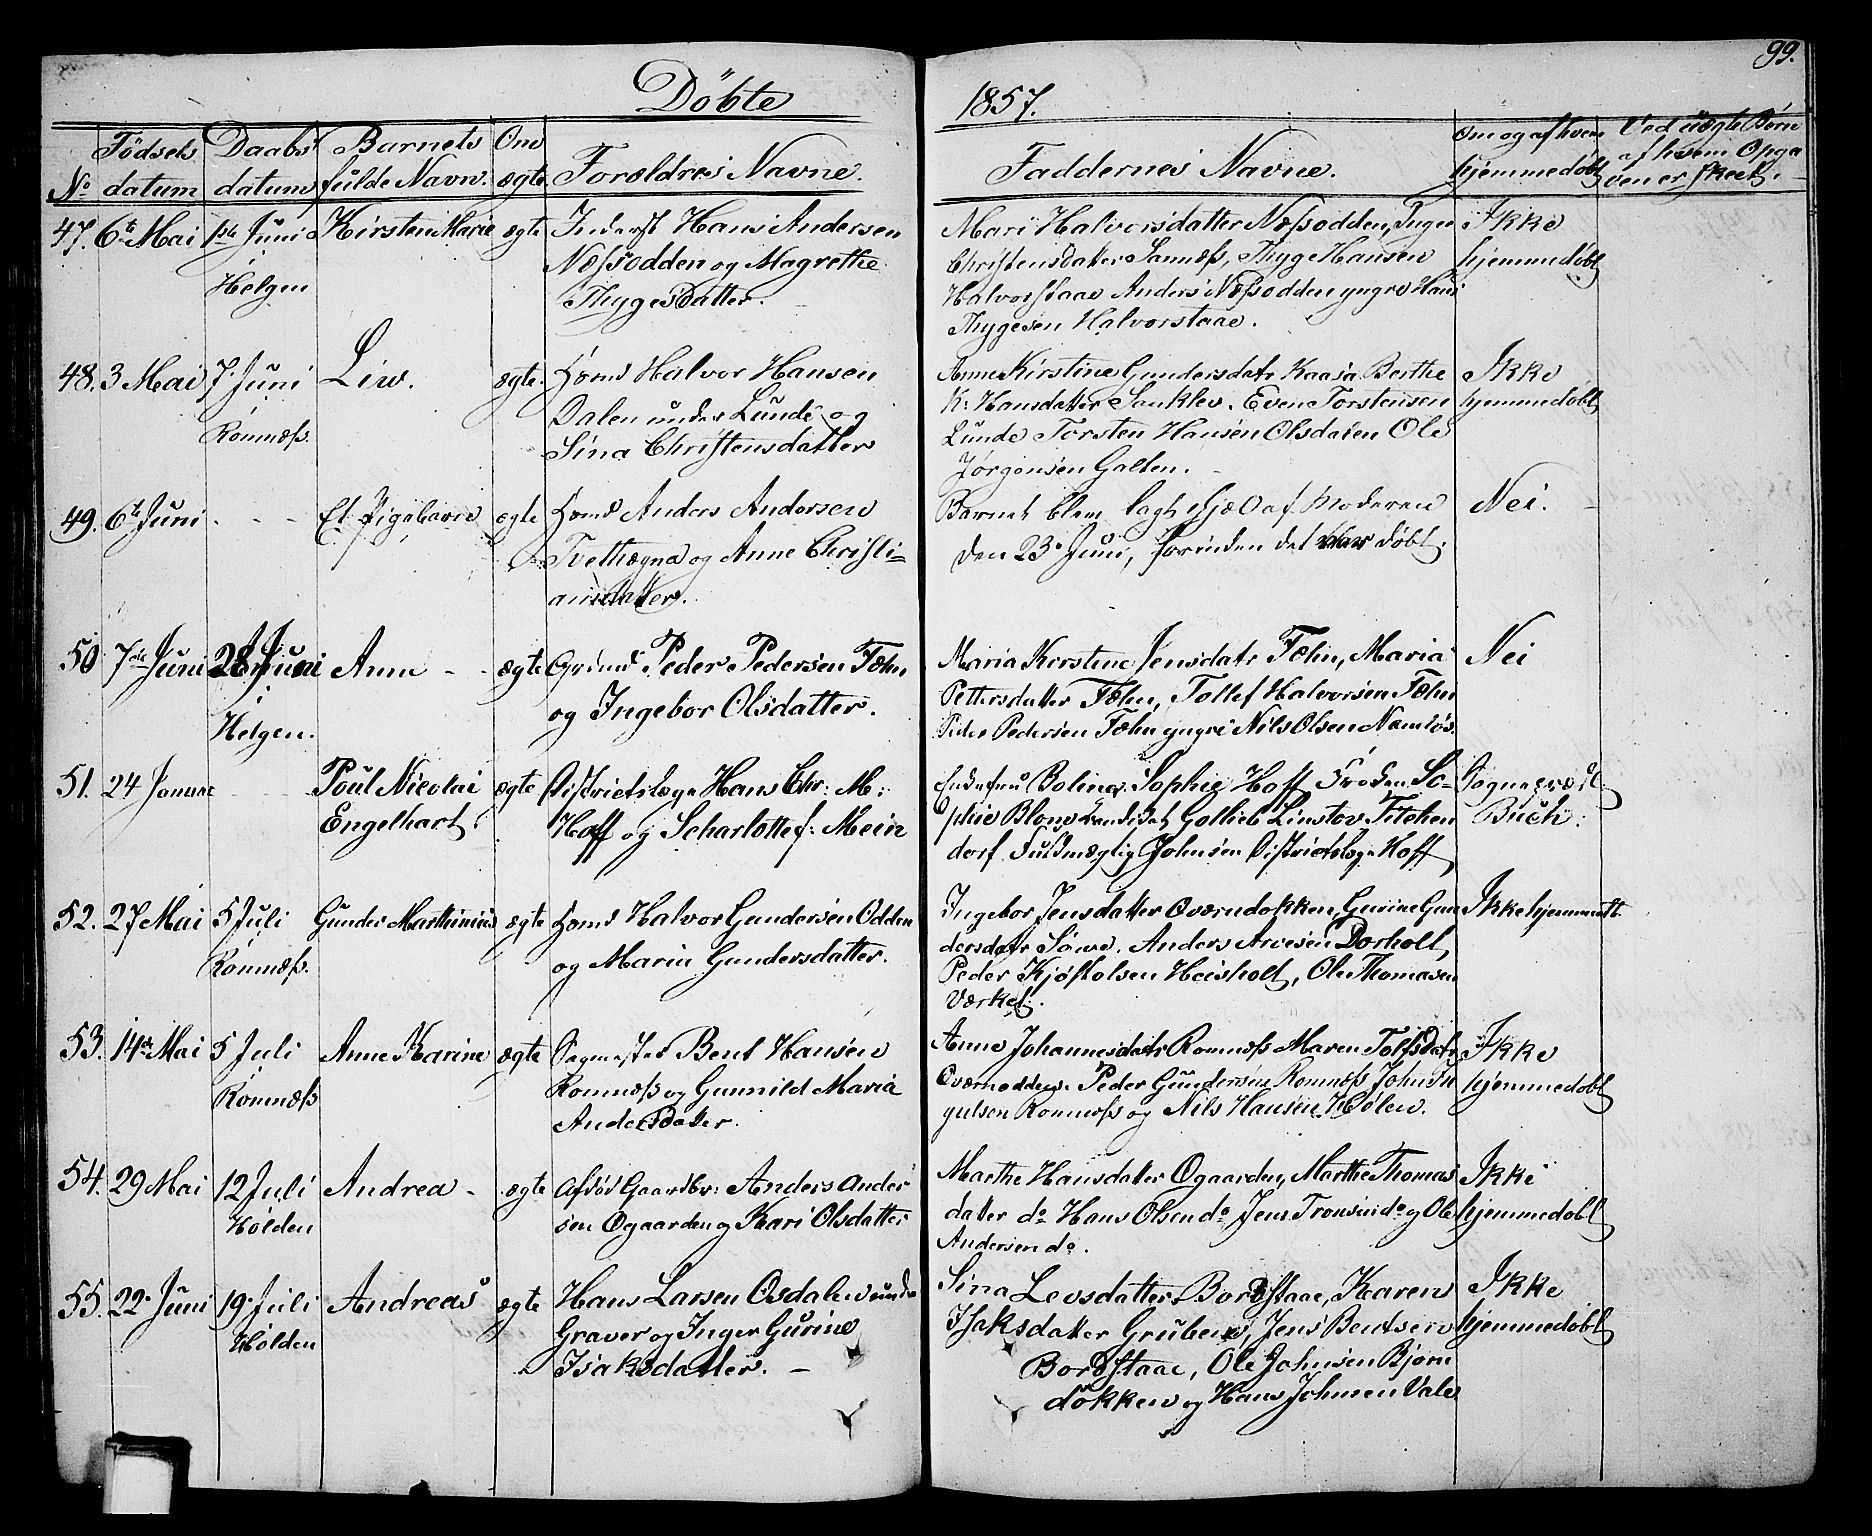 Döbte
1857.
99.
No
Födsels datum
Daabs datum
Barnets fulde Navn.
Om ægte
Forældres Navne.
Faddernes Navne.
Om og af hvem hjemmedøbt
Ved uægte Børn af hvem Opgaven er skeet.
47. 6te Mai 1ste Juni Helgen
Kirsten Marie
ægte
Inderst Hans Andersen
Næssodden og Magrethe
Thygesdatter.
Mari Halvorsdatter Næssodden, Inger
Christensdatter Sannæss, Thyge Hansen
Halvorstaae Anders Næssodden yngre Hans
Thygesen Halvorstaae.
Ikke
hjemmedøbt
48. 3 Mai 7. Juni Romnæss.
Liv.
ægte.
Huusmd Halvor Hansen
Dalen under Lunde og
Sina Christensdatter
Anne Kirstine Gundersdatr Kaasa Berthe
K: Hansdatter Sanklev. Even Torstensen
Lunde Torsten Hansen Olsdalen Ole
Jørgensen Galten.
Ikke
hjemmedøbt
49. 6te Juni - - -
Et Pigebarn
ægte
Huusmd Anders Andersen
Tvethægna og Anne Christi-
ansdatter.
Barnet blev lagt ihjæl af Moderen
den 23. Juni, forinden det var døbt.
Nei.
50 7de Juni 28 Juni i Helgen.
Anne - -
ægte
Grdmd Peder Pedersen Fæhn
og Ingebor Olsdatter.
Maria Kirstine Jensdatr Fæhn, Maria
Pettersdatter Fæhn, Tollef Halvorsen Fæhn
Peder Pedersen Fæhn yngre Nils Olsen Namløs
Nei
51. 24 Januar - - -
Poul Nicolai
Engelhart.
ægte
Districtslæge Hans Chr: M:
Hoff og Scharlotte f: Mein
Enkefru Bolina Sophie Hoff Frøken So-
phie Blom Kandidat Gotlieb Linstov Fitchen
dorf Fuldmægtig Johnsen Districtslæge Hoff
Sognepræst
Buch.
52. 27 Mai 5 Juli Romnæss.
Gunder Marthinius
ægte
Huusmd Halvor Gundersen Odden
og Maria Gundersdatter.
Ingebor Jensdatter Qværndokken, Gurine Gun
dersdatr Sønve. Anders Arvesen Dorholt,
Peder Kjøstolsen Heisholt, Ole Thomasen
Værket.
Ikke hjemmedt
53. 14de Mai 5 Juli Romnæss
Anne Karine
ægte
Sagmester Bent Hansen
Romnæss og Gunnild Maria
Andersdatter.
Anne Johannesdatr Romnæss Maren Tolfsdatr
Qværnodden. Peder Gundersen Romnæss John In
gulsen Romnæss og Nils Hansen Hølen.
Ikke
hjemmedøbt
54. 29 Mai 12 Juli Holden
Andrea -
ægte
Afdød Gaardbr: Anders Ander
sen Øgaarden og Kari Olsdatter
Marthe Hansdatter Øgaarden, Marthe Thomas
datter do Hans Olsen do Jens Tronsen do og Ole
Andersen do.
Ikke
hjemmedøbt
55. 22. Juni 19. Juli Holden
Andreas
ægte
Hans Larsen Osdalen unde
Graver og Inger Gurine
Isaksdatter. -
Sina Levsdatter Bordstaae, Karen
Isaksdatter Gruben, Jens Bentsen
Bordstaae, Ole Johnsen Bjørn
dokken og Hans Johnsen Vale
Ikke
hjemmedøbt